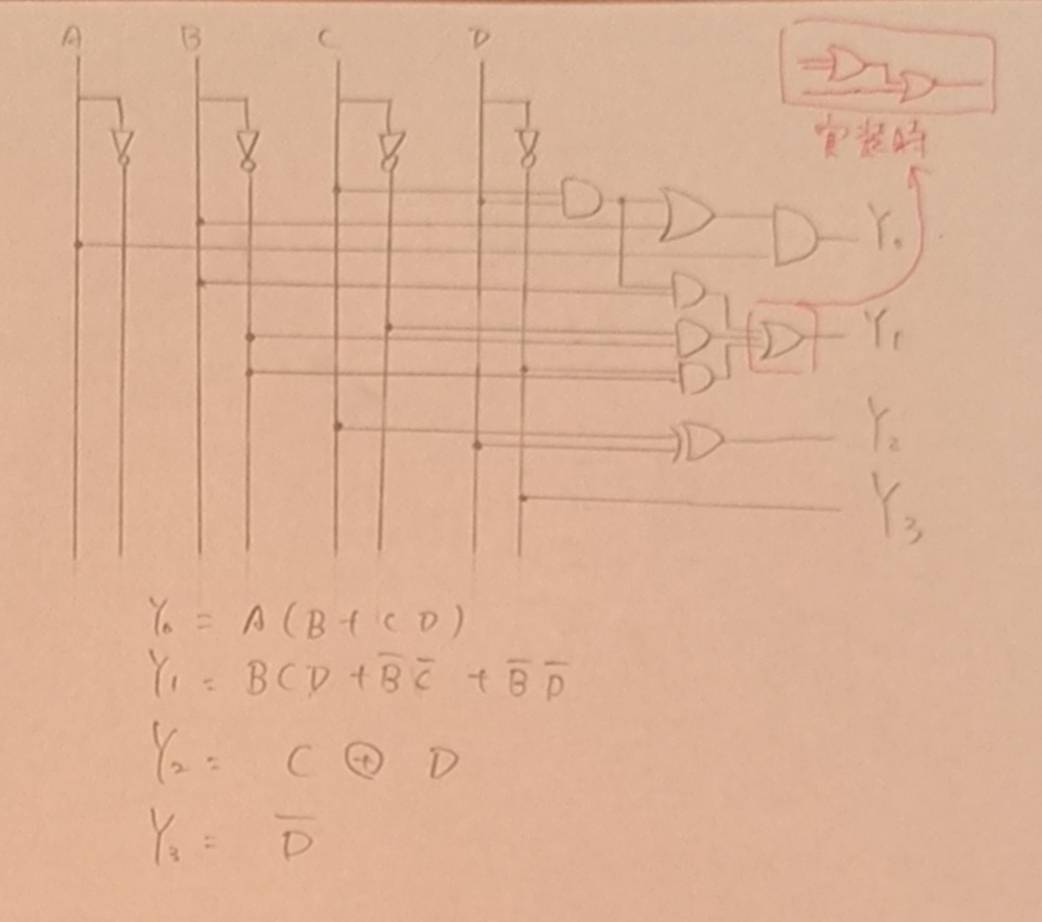 A B C D
實裝時
Y₀
Y₁
Y₂
Y₃
Y₀ = A(B+CD)
Y₁ = BCD + B̅ C̅ + B̅ D̅
Y₂ = C ⊕ D
Y₃ = D̅